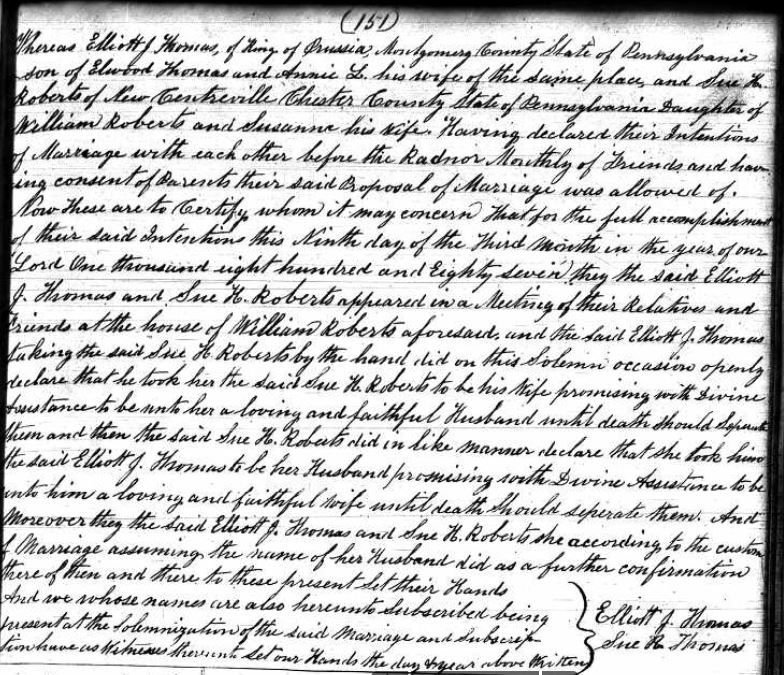 (151)
Whereas Elliott J. Thomas, of King of Prussia, Montgomery County State of Pennsylvania
son of Elwood Thomas and Annie L. his wife of the same place, and Sue H.
Roberts of New Centreville Chester County State of Pennsylvania Daughter of
William Roberts and Susanna his Wife. Having declared their Intentions
of Marriage with each other before the Radnor Monthly of Friends and hav-
ing consent of Parents their said Proposal of Marriage was allowed of.
Now these are to Certify whom it may concern that for the full accomplishment
of their said Intentions this Ninth day of the Third Month in the year of our
Lord One thousand eight hundred and Eighty seven they the said Elliott
J. Thomas and Sue H. Roberts appeared in a Meeting of their Relatives and
Friends at the house of William Roberts aforesaid, and the said Elliott J. Thomas
taking the said Sue H. Roberts by the hand did on this Solemn occasion openly
declare that he took her the said Sue H. Roberts to be his Wife promising with Divine
Assistance to be unto her a loving and faithful Husband until death should Seperate
them and then the said Sue H. Roberts did in like manner declare that she took him
the said Elliott J. Thomas to be her Husband promising with Divine Assistance to be
unto him a loving and faithful wife until death should seperate them. And
Moreover they the said Elliott J. Thomas and Sue H. Roberts she according to the custom
of Marriage assuming the name of her Husband did as a further confirmation
there of then and there to these present set their Hands
And we whose names are also hereunto Subscribed being
present at the Solemnization of the said Marriage and Subscrip-
tion have as Witnesses thereunto set our Hands the day & year above Written
Elliott J. Thomas
Sue R. Thomas